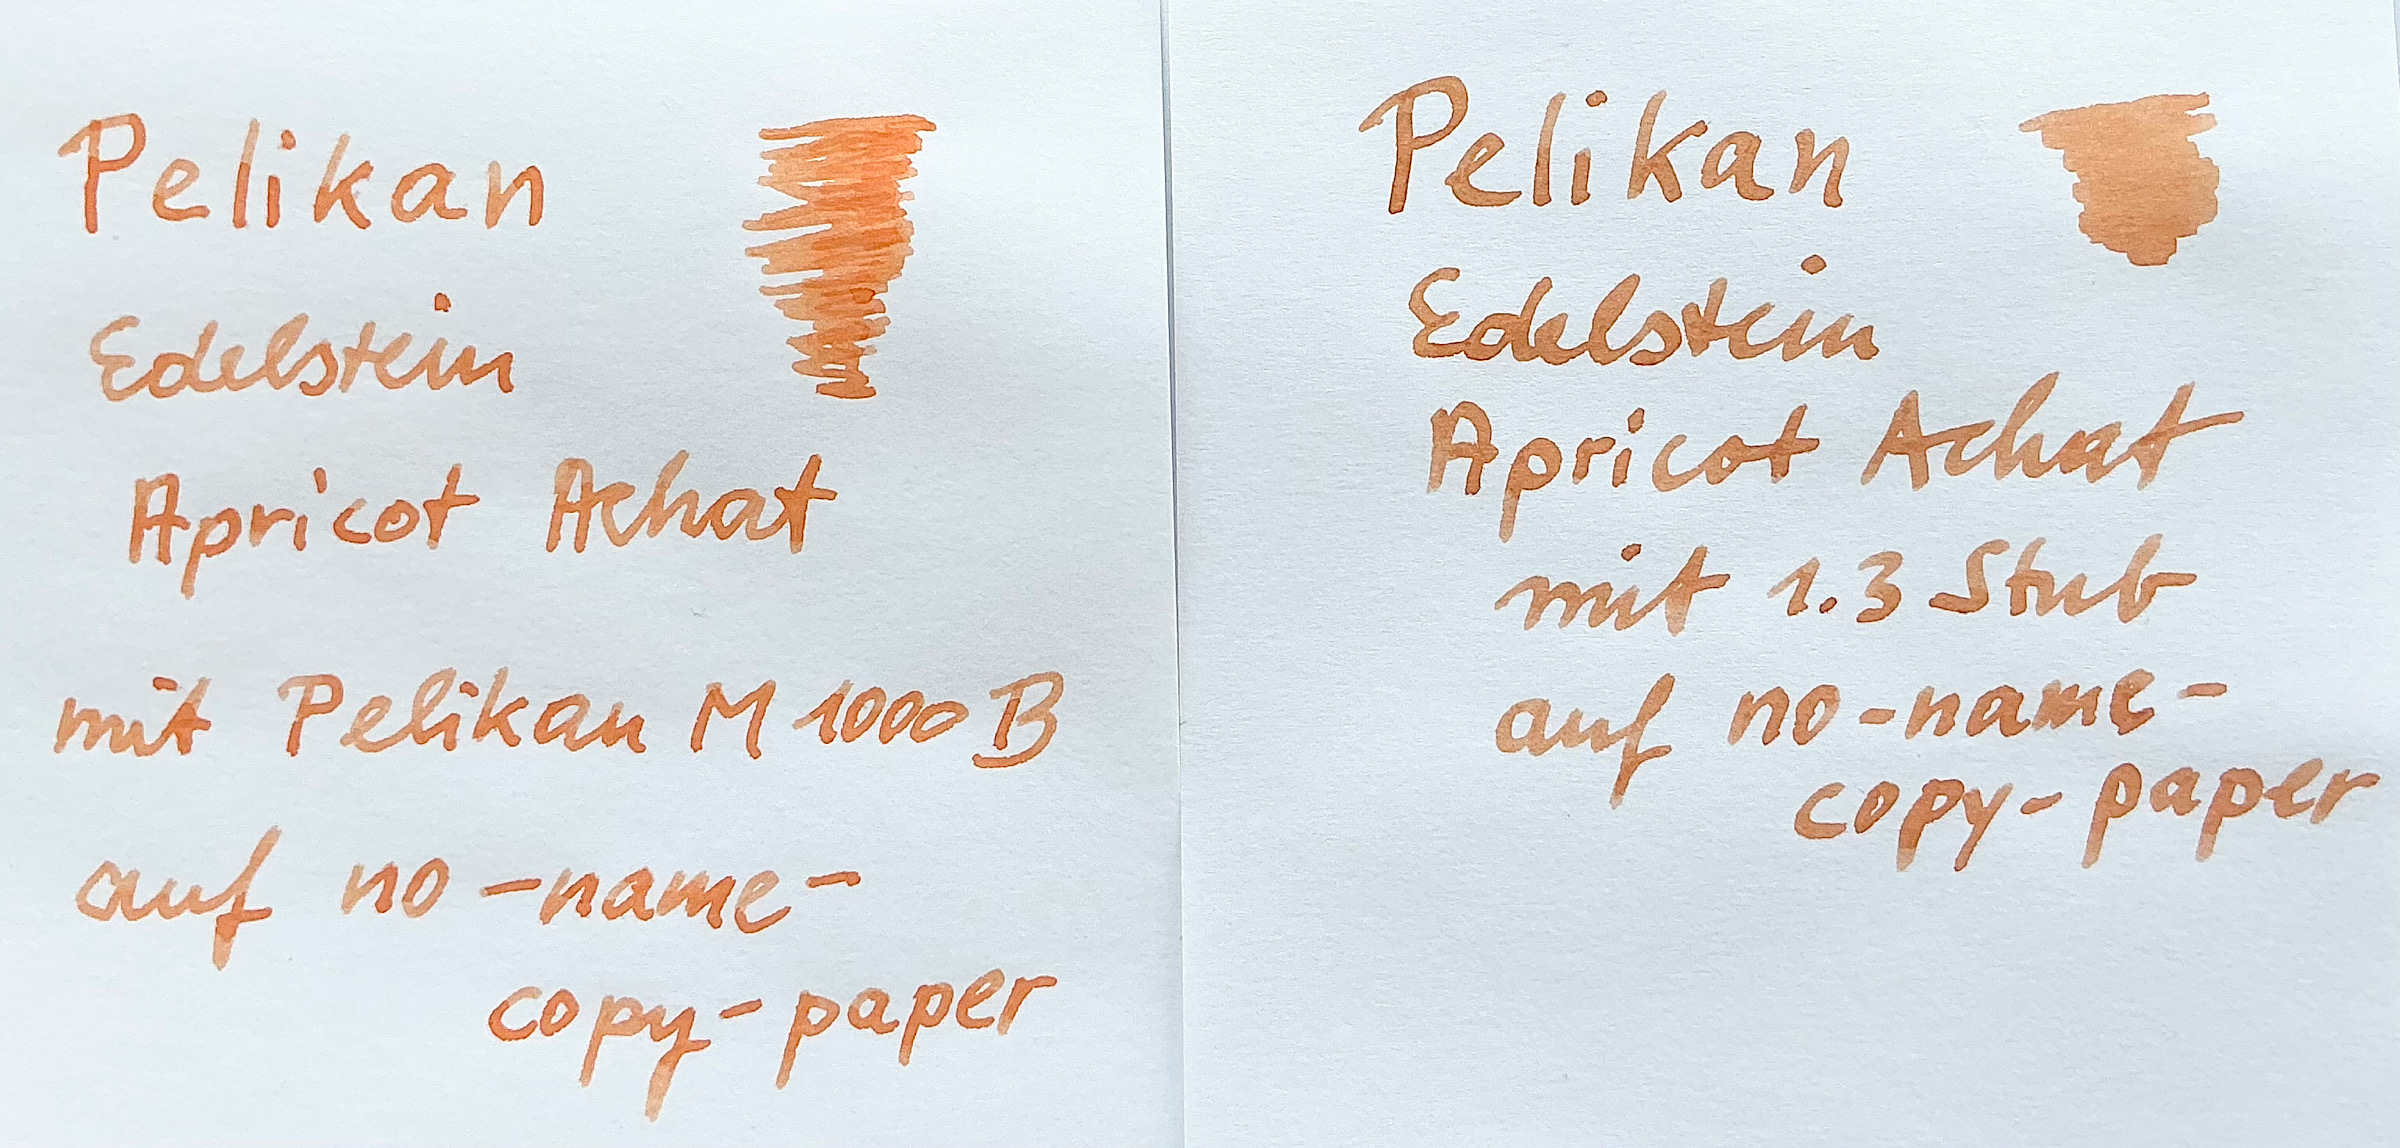 Pelikan
Edelstein
Apricot Achat
mit Pelikan M 1000 B
auf no-name-
copy-paper
Pelikan
Edelstein
Apricot Achat
mit 1.3 Stub
auf no-name-
copy-paper